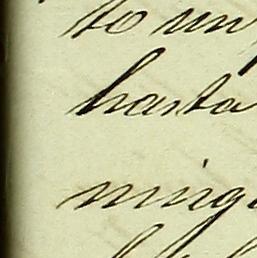 to un
hasta
ning